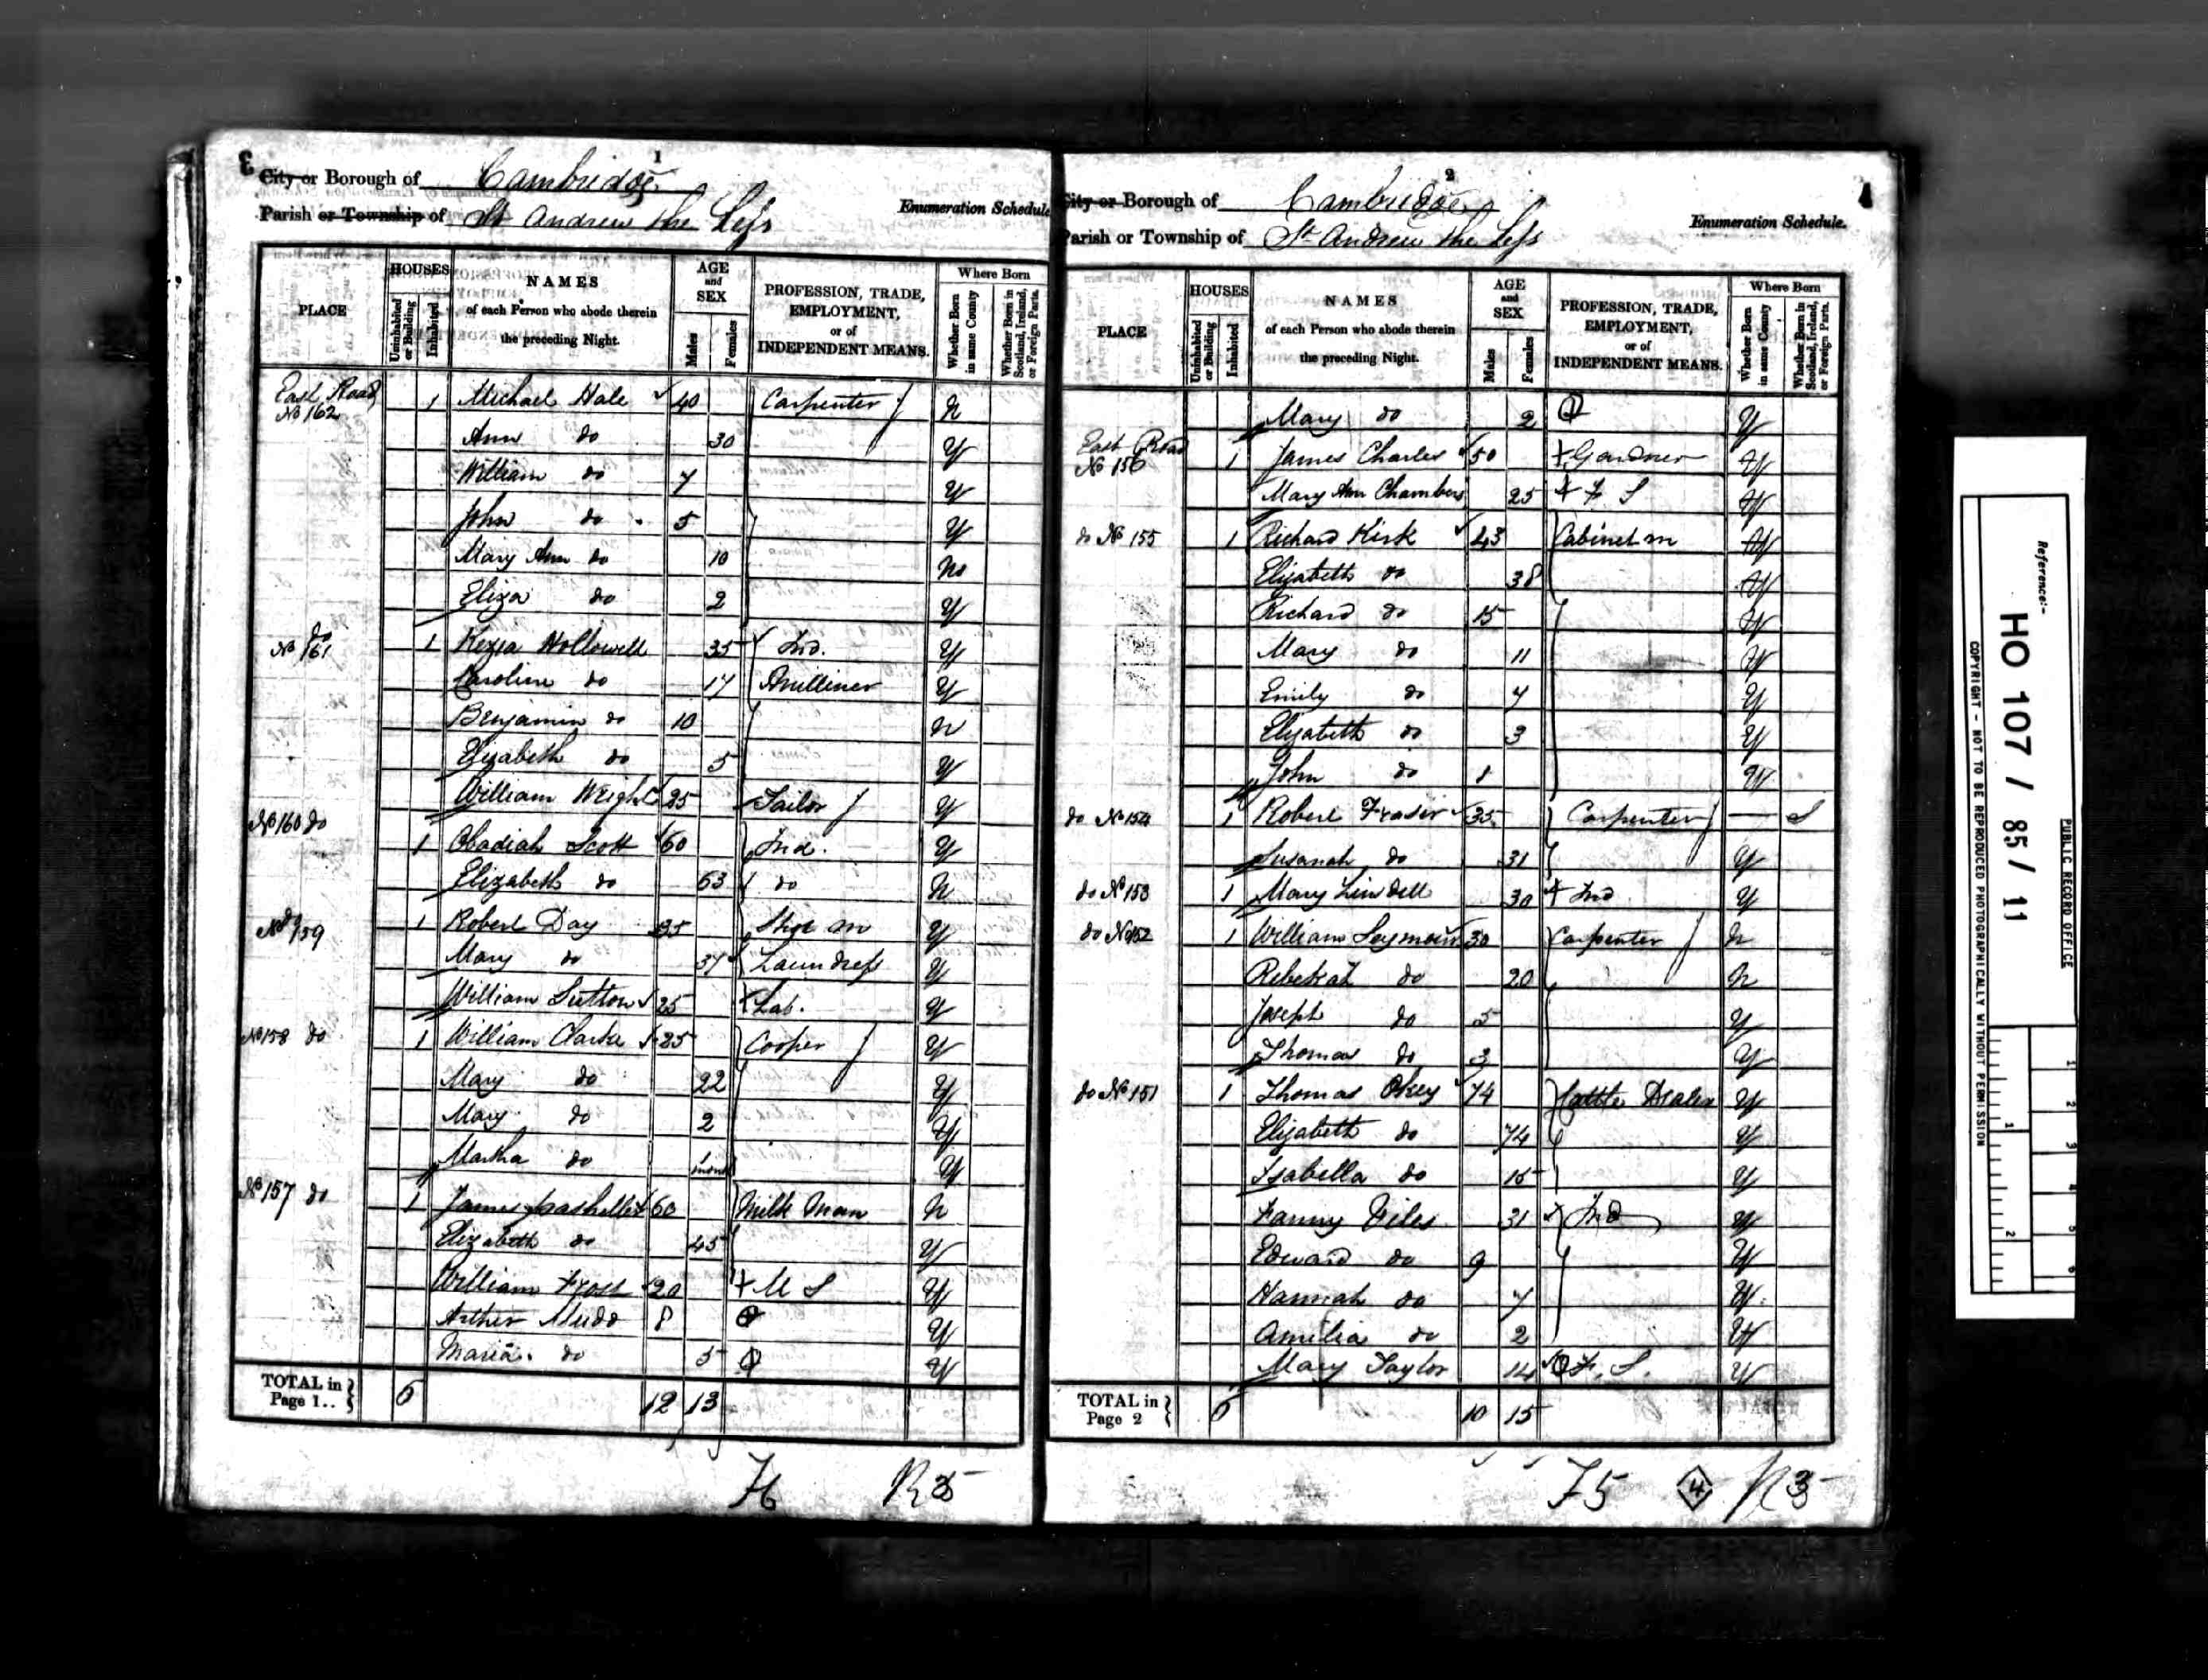 3
1
City or Borough of Cambridge
Parish or Township of St Andrew the Less
Enumeration Schedule
PLACE
HOUSES
Uninhabited or Building
Inhabited
NAMES of each Person who abode therein the preceding Night.
AGE and SEX
Males
Females
PROFESSION, TRADE, EMPLOYMENT, or of INDEPENDENT MEANS.
Where Born
Whether Born in same County
Whether Born in Scotland, Ireland, or Foreign Parts.
East Road No 162 1 Michael Hale 40 Carpenter N
Ann do 30 Y
William do 7 Y
John do 5 Y
Mary Ann do 10 No
Eliza do 2 Y
do No 161 1 Kezia Hollowell 35 Ind. Y
Caroline do 17 Milliner Y
Benjamin do 10 N
Elizabeth do 5 Y
William Wright 25 Tailor Y
No 160 do 1 Obadiah Scott 60 Ind. Y
Elizabeth do 63 do N
No 159 do 1 Robert Day 35 Shoe m Y
Mary do 37 Laundress Y
William Sutton 25 Lab. Y
No 158 do 1 William Clarke 25 Cooper Y
Mary do 22 Y
Mary do 2 Y
Martha do 1 mon Y
No 157 do 1 James 60 Milk Man N
Elizabeth do 45 Y
William Frost 20 M S Y
Arther Mudd 8 Y
Maria do 5 Y
TOTAL in Page 1.. 6 12 13
76 R 35
2
City or Borough of Cambridge
Parish or Township of St Andrew the Less
Enumeration Schedule.
PLACE
HOUSES
Uninhabited or Building
Inhabited
NAMES of each Person who abode therein the preceding Night.
AGE and SEX
Males
Females
PROFESSION, TRADE, EMPLOYMENT, or of INDEPENDENT MEANS.
Where Born
Whether Born in same County
Whether Born in Scotland, Ireland, or Foreign Parts.
Mary do 2 Y
East Road No 156 1 James Charles 50 Gardner Y
Mary Ann Chambers 25 F S Y
do No 155 1 Richard Kirk 43 Cabinet m Y
Elizabeth do 38 Y
Richard do 15 Y
Mary do 11 Y
Emily do 7 Y
Elizabeth do 3 Y
John do 1 Y
do No 154 1 Robert Frasir 35 Carpenter — S
Susanah do 31 Y
do No 153 1 Mary Lindell 30 Ind Y
do No 152 1 William Seymour 30 Carpenter N
Rebekah do 20 N
Joseph do 5 Y
Thomas do 3 Y
do No 151 1 Thomas Okey 74 Cattle Dealer Y
Elizabeth do 74 Y
Isabella do 15 Y
Fanny Giles 31 Ind Y
Edward do 9 Y
Hannah do 7 Y
Amelia do 2 Y
Mary Taylor 14 F. S. Y
TOTAL in Page 2 6 10 15
75 4 N 3
Reference:-
HO 107 / 85 / 11
PUBLIC RECORD OFFICE
COPYRIGHT - NOT TO BE REPRODUCED PHOTOGRAPHICALLY WITHOUT PERMISSION
1 2
1 2 3 4 5 6